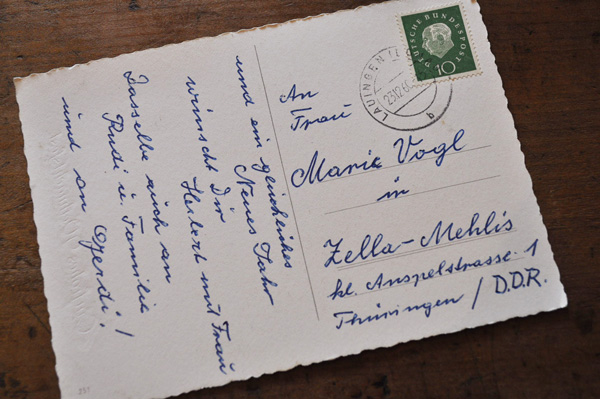 und ein glückliches
Neues Jahr
wünscht Dir
Herbert mit Frau
Dasselbe auch an
Rudi u. Familie!
und an Gerdi!
DEUTSCHE BUNDESPOST
10
LAUINGEN
23.12.60
a
An
Frau
Marie Vogl
in
Zella-Mehlis
kl. Anspelstrasse 1
Thüringen / D.D.R.